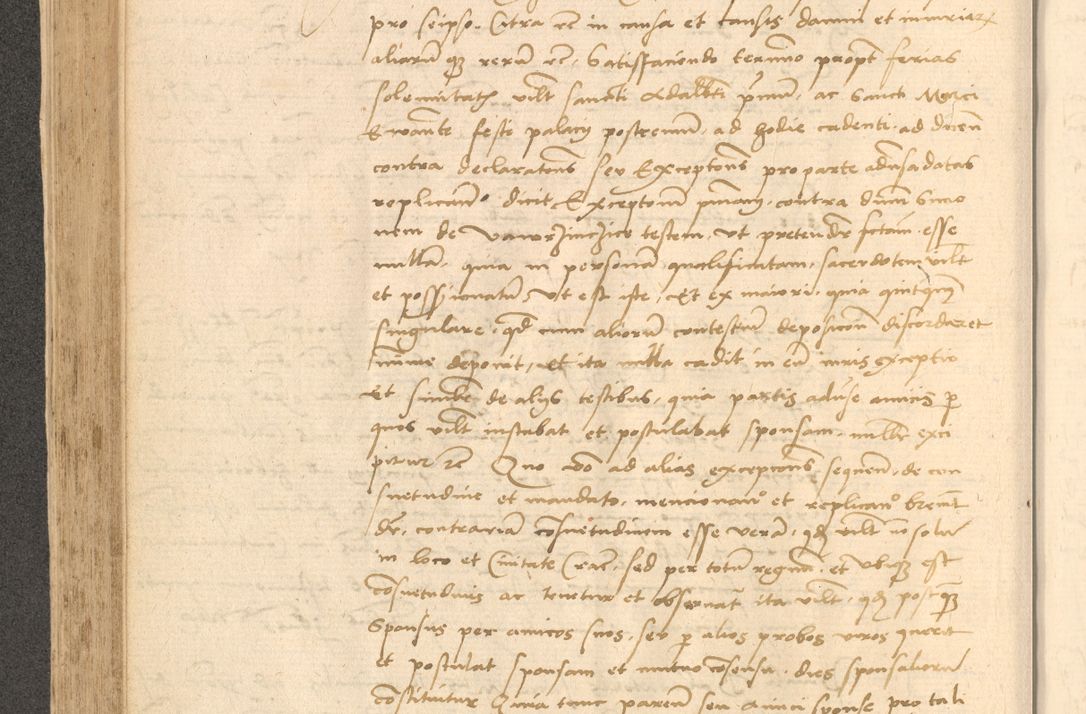 pro seipso. Citra etc in causa et causis damni et iniuriarum
aliarumque rerum etc. Satisfaciendo termino propter ferias
solemnitatis videlicet sancti Adalberti primum, ac sancti Marci
Ewante festi palacii postremum, ad hodie cadenti, ad dicen
contra declarationes seu Exceptones pro parte adversa datas
replicando dicit Exceptionem primam, contra dnm Simo
nem de Vaworzinczicz testem, ut pretenditur factam esse
nullam, quia in personam qualificatam, sacerdotem videlicet
et possessionatum, Ut est iste, Et ex maiori, quia quitquam
singulare, quod cum aliorum contestium deposicioni discordaret
minime deponit, et ita nulla cadit in eum iuris exceptio
Et similiter de aliis testibus, quia partis adverse amicis per
quos videlicet instabat et postulabat sponsam, nulliter exci
pitur etc Quo vero ad alias exceptiones sequen, de con
suetudine et mandato, mencionan et replican breviter
dicit, contrariam consuetudinem esse veram, quod videlicet non solum
in loco et Civitate Crac, sed per totum regnum, et ubique est
consuetudinis ac tenetur et observatur ita videlicet, quod postquam
Sponsus per amicos suos, seu per alios probos viros querit
et postulat sponsam et mutuo consensu, dies sponsaliorum
constituitur Quia tunc parentes seu amici sponse pro tali